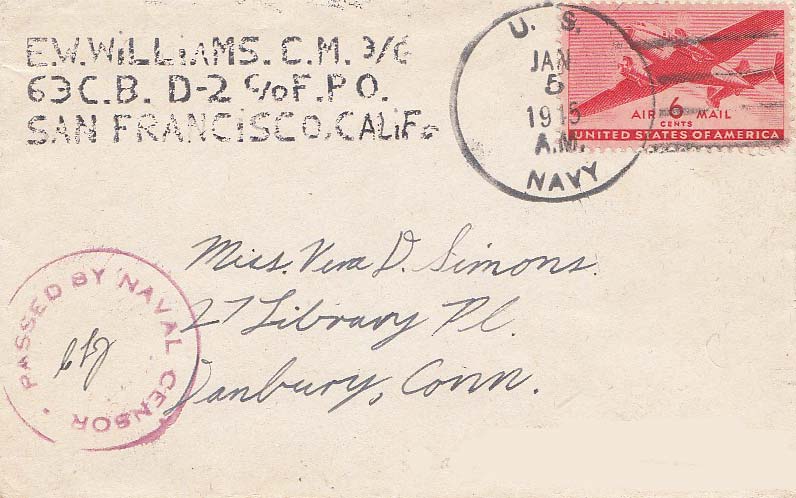 E.W.WILLIAMS. C.M. 3/C
63 C.B. D-2 c/o F.P.O.
SAN FRANCISCO, CALIF.
U. S.
JAN
5
1945
A.M.
NAVY
6
AIR MAIL
CENTS
UNITED STATES OF AMERICA
Miss. Vera D. Simons.
27 Library Pl.
Danbury, Conn.
PASSED BY NAVAL CENSOR